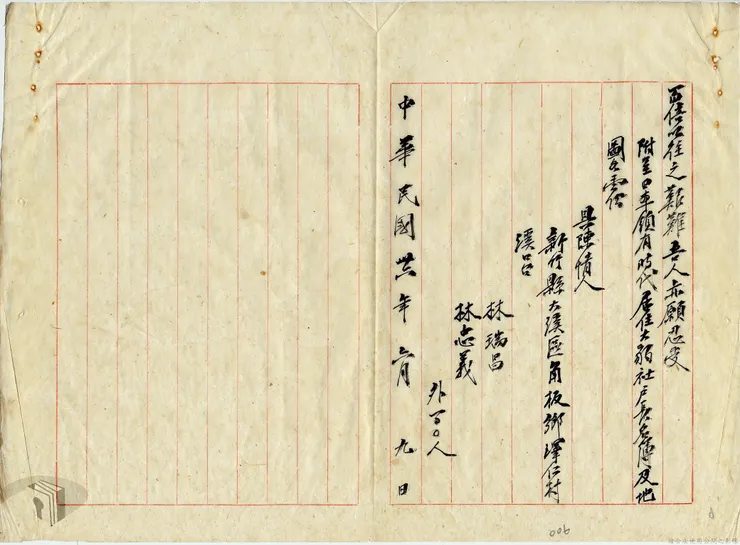 百倍以往之艱難吾人亦願忍受
附呈日本領有時代居住大豹社戶長名簿及地
圖各壹份
具陳情人
新竹縣大溪區角板鄉澤仁村
溪口台
林瑞昌
林忠義
外百〇人
中華民國卅六年六月九日
006